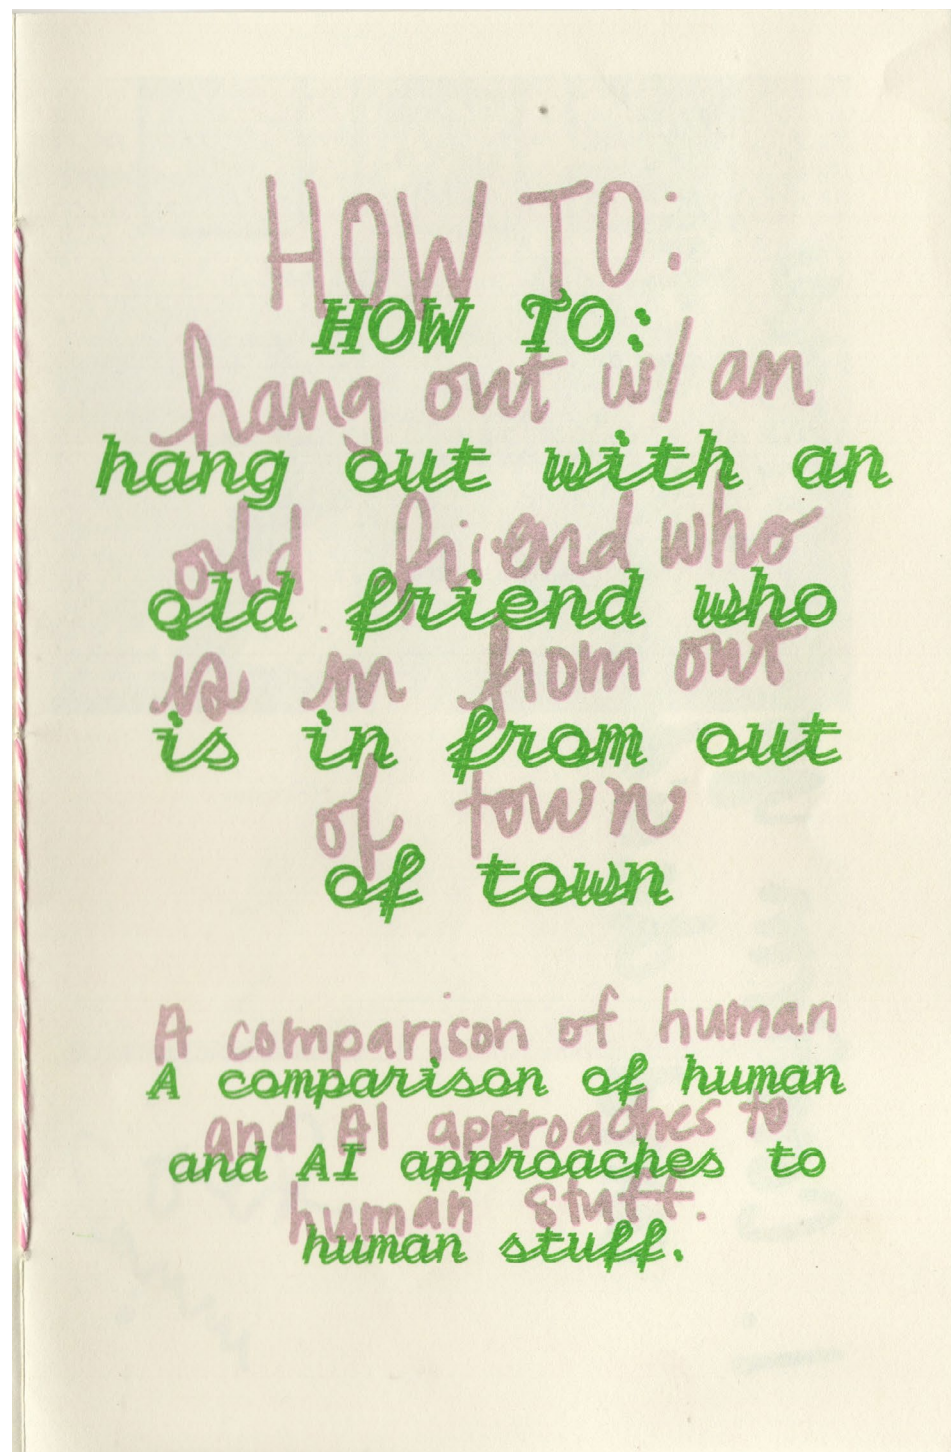 HOW TO:
HOW TO:
hang out w/ an
hang out with an
old friend who
old friend who
is in from out
is in from out
of town
of town
A comparison of human
A comparison of human
and AI approaches to
and AI approaches to
human stuff.
human stuff.